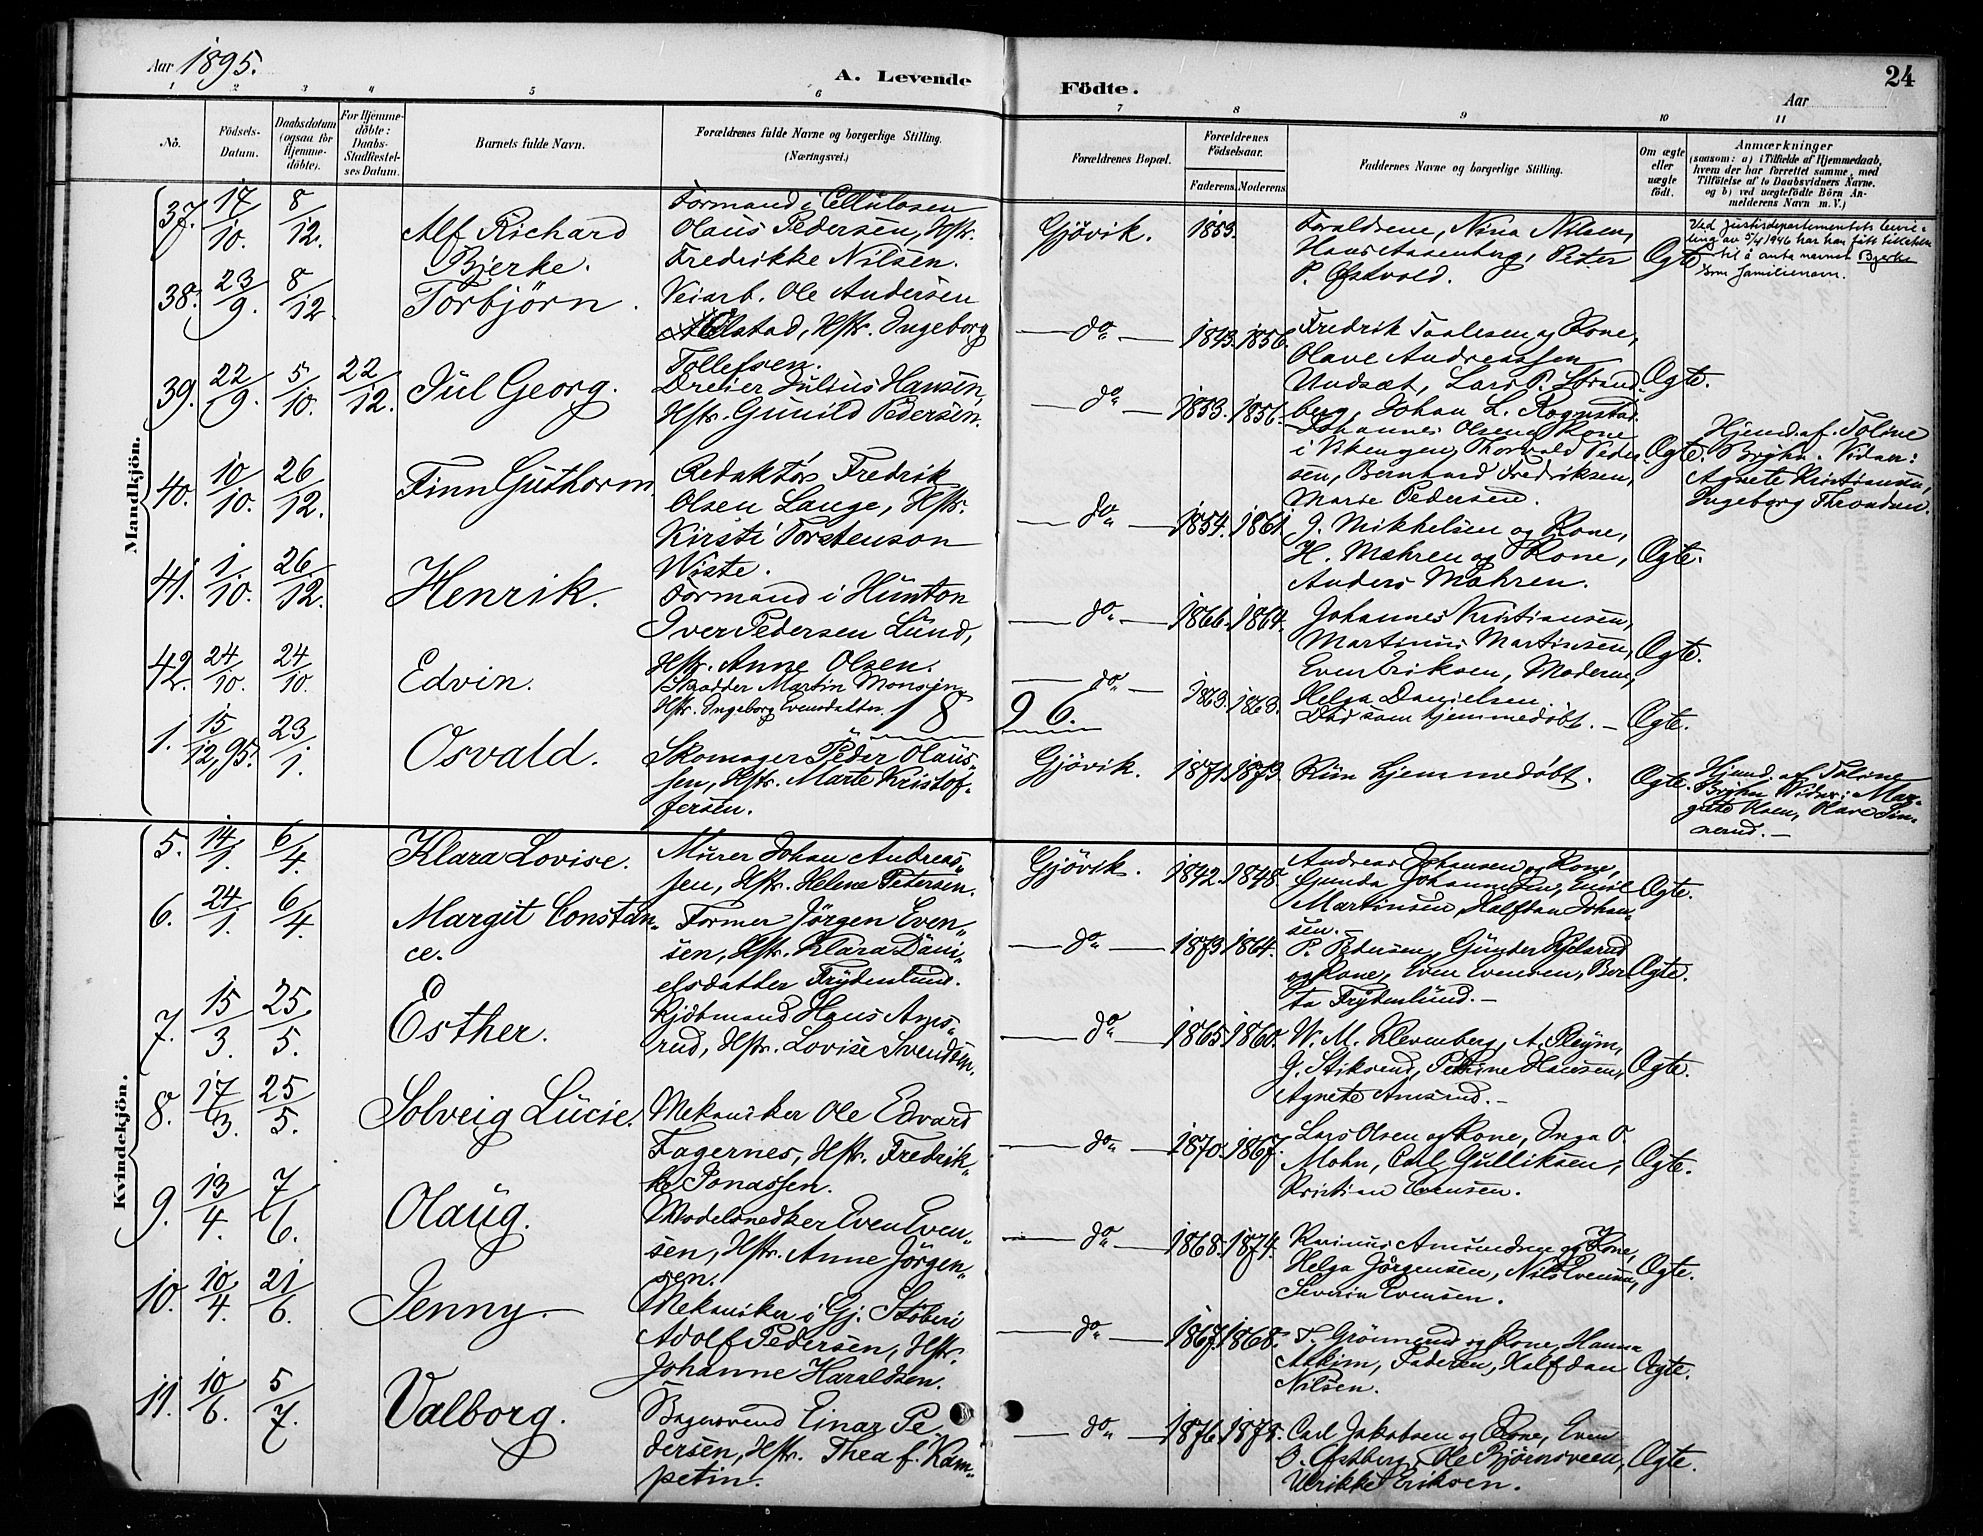 Aar 1895.
A. Levende
Födte.
24
Aar
1 2 3 4 5 6 7 8 9 10 11
No.
Födsels-
Datum.
Daabsdatum
(ogsaa for
Hjemme-
döbte).
For Hjemme-
döbte:
Daabs-
Stadfæstel-
ses Datum.
Barnets fulde Navn.
Forældrenes fulde Navne og borgerlige Stilling.
(Næringsvei.)
Forældrenes Bopæl.
Forældrenes
Födselsaar.
Faderens. Moderens.
Faddernes Navne og borgerlige Stilling.
Om ægte
eller
uægte
födt.
Anmærkninger
(saasom: a) i Tilfælde af Hjemmedaab,
hvem der har forrettet samme, med
Tilföielse af to Daabsvidners Navne.
og b) ved uægtefödte Börn An-
melderens Navn m. V.)
Mandkjön.
37. 17/10. 8/12. Alf Richard
Bjerke.
Formand i Cellulosen
Olaus Pedersen, Hstr.
Fredrikke Nilsen.
Gjövik. 1859.
Forældrene, Nina Nilsen,
Hans Aasenberg, Peter
P. Østvold.
Ægte.
Ved Justisdepartementets bevil-
ling av 5/4 1946 har han fått tillatelse
til å anta navnet Bjerke
som familienavn.
38. 23/9. 8/12 Torbjörn.
Veiarb. Ole Andersen
Alstad, Hstr. Ingeborg
Tollefsen.
do 1843. 1856.
Fredrik Taalesen og Kone,
Olave Andreassen
Undsæt, Lars P. Strand-
berg, Johan L. Rognstad.
Ægte.
39. 22/9. 5/10. 22/12. Jul Georg.
Dreier Julius Hansen,
Hstr. Gunild Pedersen.
do 1853. 1856.
Johannes Olsen og Kone
i Vikengen, Thorvald Peder-
sen, Bernhard Fredriksen,
Marie Pedersen.
Ægte.
Hjemd. af Toline
Bryhn. Vidner:
Agnete Kristiansen,
Ingeborg Throndsen.
40. 10/10. 26/12. Finn Guthorm
Redaktör Fredrik
Olsen Lange, Hstr.
Kirsti Torstenson
Wiste.
do 1854. 1861.
J. Mikkelsen og Kone,
H. Mæhren og Kone,
Anders Mæhren.
Ægte.
41. 1/10. 26/12. Henrik.
Formand i Hunton
Iver Pedersen Lund,
Hstr. Anne Olsen.
do 1866. 1864.
Johannes Kristiansen,
Martinus Martinsen,
Even Eriksen, Moderen,
Helga Danielsen
Ægte.
42. 24/10. 24/10. Edvin.
Skrædder Martin Monsen,
Hstr. Ingeborg Evensdatter.
do 1863. 1863.
Död som hjemmedöbt.
Ægte.
1896.
1. 15/12, 95. 23/1. Osvald.
Skomager Peder Olaus-
sen, Hstr. Marte Kristof-
fersen.
Gjövik. 1871. 1873.
Kun hjemmedöbt.
Ægte.
Hjemd. af Toline
Bryhn. Vidner: Mar-
grete Olsen, Olave Sin-
nerud.
Kvindekjön.
5. 14/1. 6/4. Klara Lovise.
Murer Johan Andreas-
sen, Hstr. Helene Petersen.
Gjövik. 1842. 1848.
Andreas Johansen og Kone,
Gunda Johannesen, Emil
Martinsen, Halfdan Johan-
sen.
Ægte.
6. 24/1. 6/4. Margit Constan-
ce.
Former Jörgen Even-
sen, Hstr. Klara Dani-
elsdatter Frydenlund.
do 1873. 1864.
P. Pedersen, Gunder Kjelsrud
og Kone, Even Evensen, Ber
ta Frydenlund.
Ægte.
7. 15/3. 25/5. Esther.
Kjöbmand Hans Ams-
rud, Hstr. Lovise Svendsen.
do 1865. 1860.
W. M. Klevenberg, A. Pleym,
G. Stikrud, Petrine Hansen,
Agnete Amsrud.
Ægte.
8. 17/3. 25/5. Solveig Lucie.
Mekaniker Ole Edvard
Fagernes, Hstr. Fredrik-
ke Jonassen.
do 1870. 1867.
Lars Olsen og Kone, Inga O.
Mohn, Carl Gulliksen,
Kristian Evensen.
Ægte.
9. 13/4. 7/6. Olaug.
Modelsnedker Even Even-
sen, Hstr. Anne Jörgen-
sen.
do 1868. 1874.
Rasmus Amundsen og Kone,
Helga Jörgensen, Nils Evensen,
Severin Evensen.
Ægte.
10. 10/4. 21/6. Jenny.
Mekaniker i Gj. Stöberi
Adolf Pedersen, Hstr.
Johanne Haraldsen.
do 1867. 1868.
T. Grönnerud og Kone, Hanna
Askim, Faderen, Halfdan
Nilsen.
Ægte.
11. 10/6. 5/7. Valborg.
Bagersvend Einar Pe-
dersen, Hstr. Thea f. Kam-
petin.
do 1876. 1878.
Carl Jakobsen og Kone, Even
O. Østberg, Ole Bjørnsveen,
Ulrikke Eriksen.
Ægte.